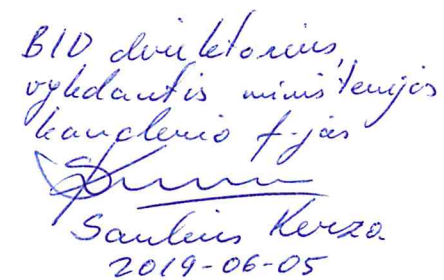 BID direktorius,
vykdantis ministerijos
kanclerio f-jas
Saulius Kerza
2019-06-05